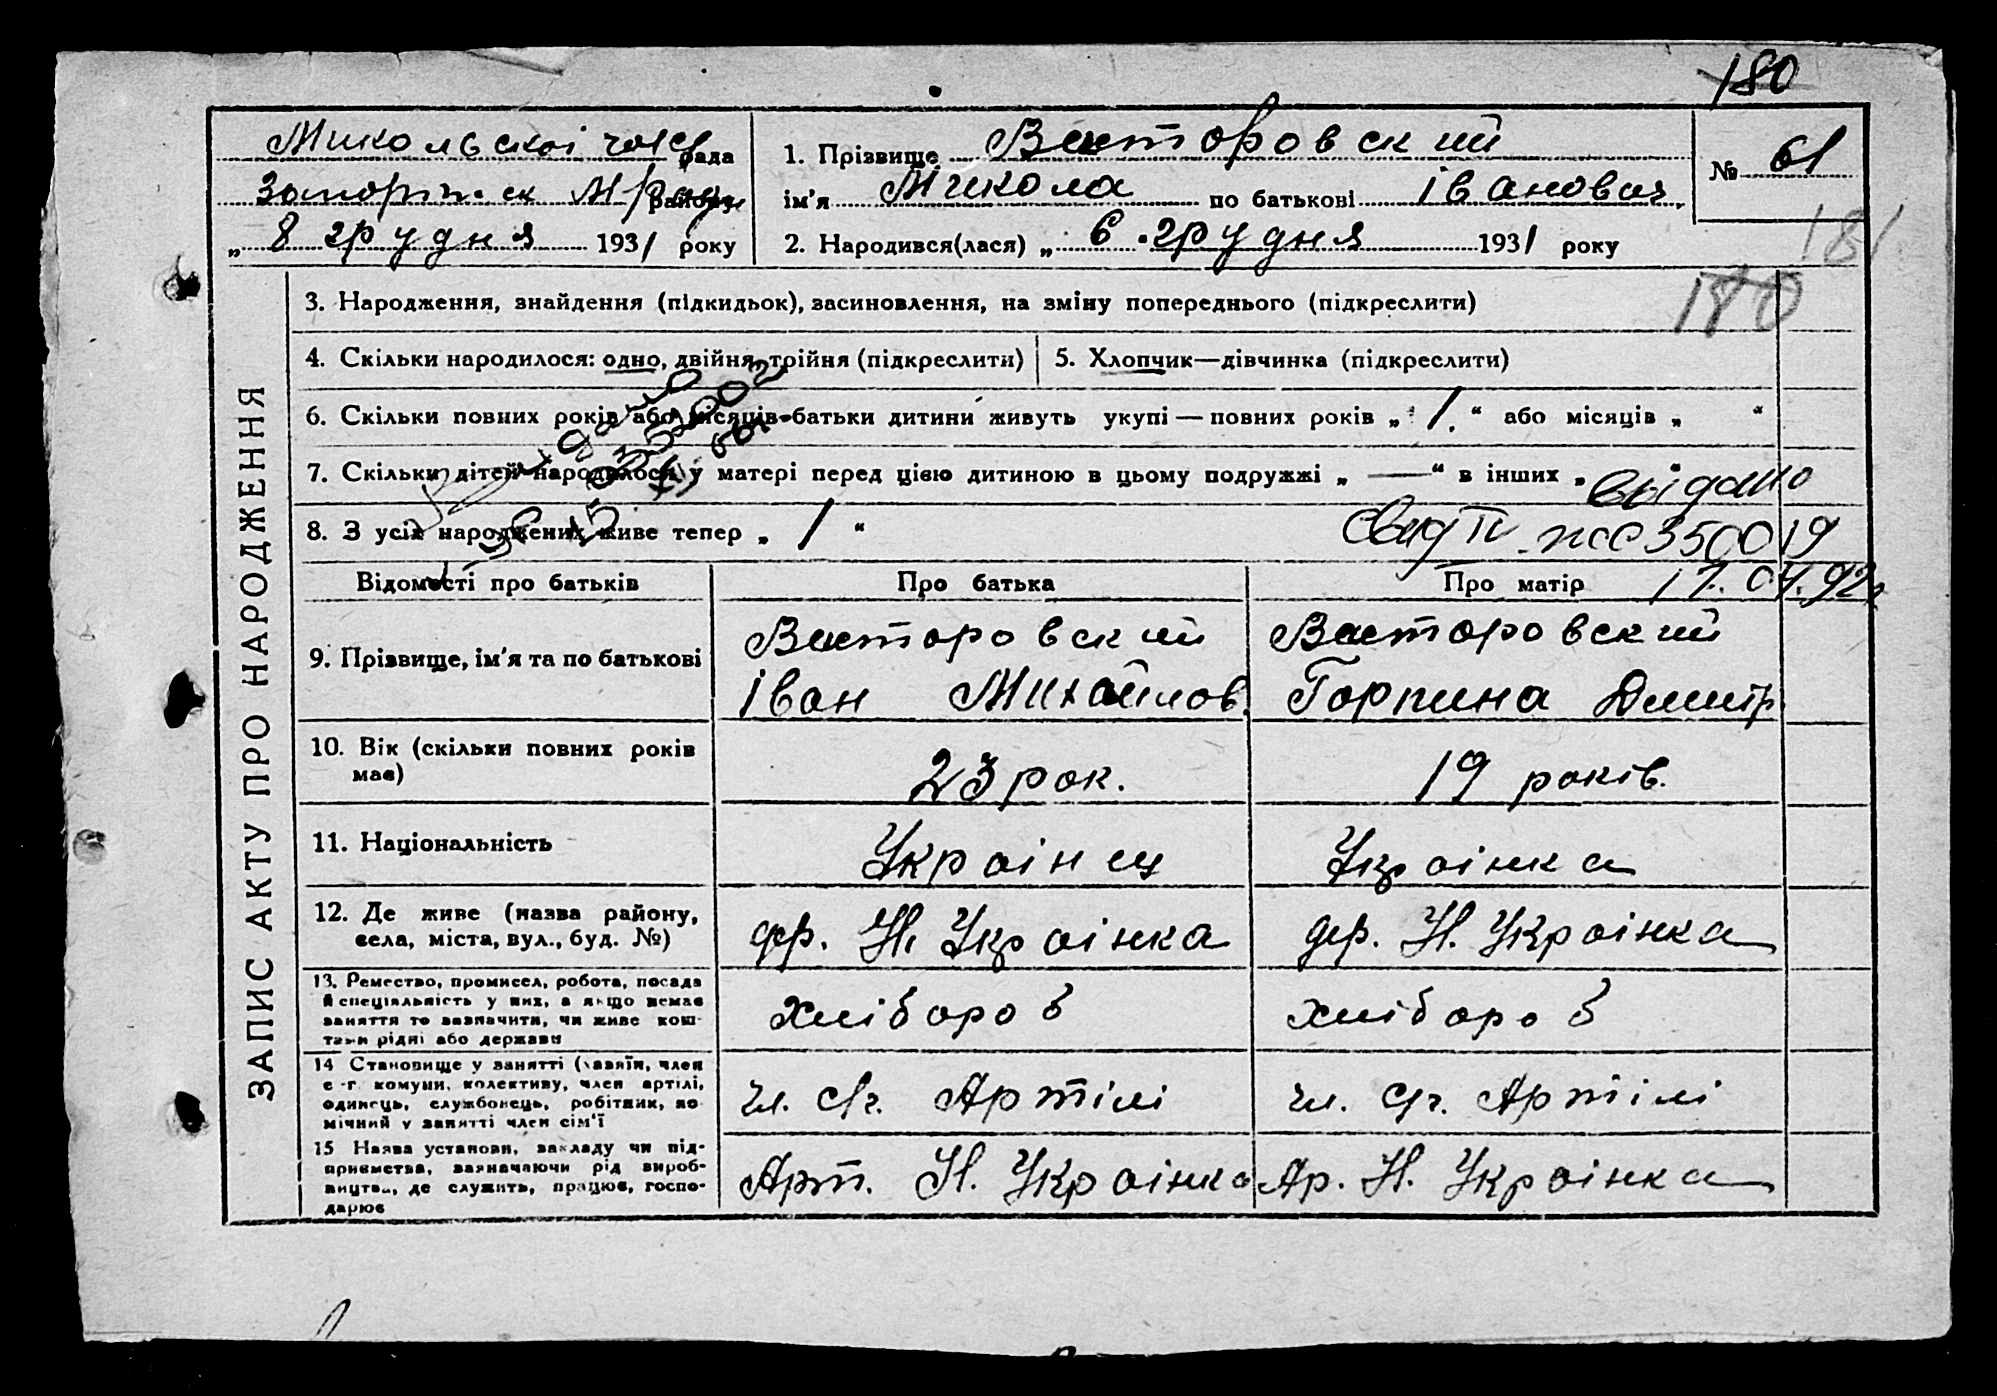 180
Микольскої рада
району
„ 8 грудня 1931 року
1. Прізвище Викторовский
ім'я Микола по батькові Іванович
2. Народився(лася) „ 6 грудня 1931 року
№ 61
181
180
ЗАПИС АКТУ ПРО НАРОДЖЕННЯ
3. Народження, знайдення (підкидьок), засиновлення, на зміну попереднього (підкреслити)
4. Скільки народилося: одно, двійня, трійня (підкреслити)
5. Хлопчик—дівчинка (підкреслити)
6. Скільки повних років або місяців батьки дитини живуть укупі — повних років „ 1 “ або місяців „ “
7. Скільки дітей народилося у матері перед цією дитиною в цьому подружжі „ — “ в інших „
видано
8. З усіх народжених живе тепер „ 1 “
350019
17. 04. 92г
Відомості про батьків
Про батька
Про матір
9. Прізвище, ім'я та по батькові
Викторовский
Іван Михайлов.
Викторовский
Горпина Дмитр.
10. Вік (скільки повних років має)
23 рок.
19 років.
11. Національність
Украінец
Украінка
12. Де живе (назва району,
села, міста, вул., буд. №)
Н. Украінка
Н. Украінка
13. Ремество, промисел, робота, посада
й спеціяльність у них, а якщо немає
заняття то зазначити, чи живе кош-
тами рідні або держави
хлібороб
хлібороб
14 Становище у занятті (хазяїн, член
с.-г. комуни, колективу, член артілі,
одинець, службовець, робітник, по-
мічний у занятті член сім'ї
чл. с/г. Артілі
чл. с/г. Артілі
15 Назва установи, закладу чи під-
приємства, зазначаючи рід вироб-
ництва, де служить, працює, госпо-
дарює
Арт. Н. Украінка
Ар. Н. Украінка